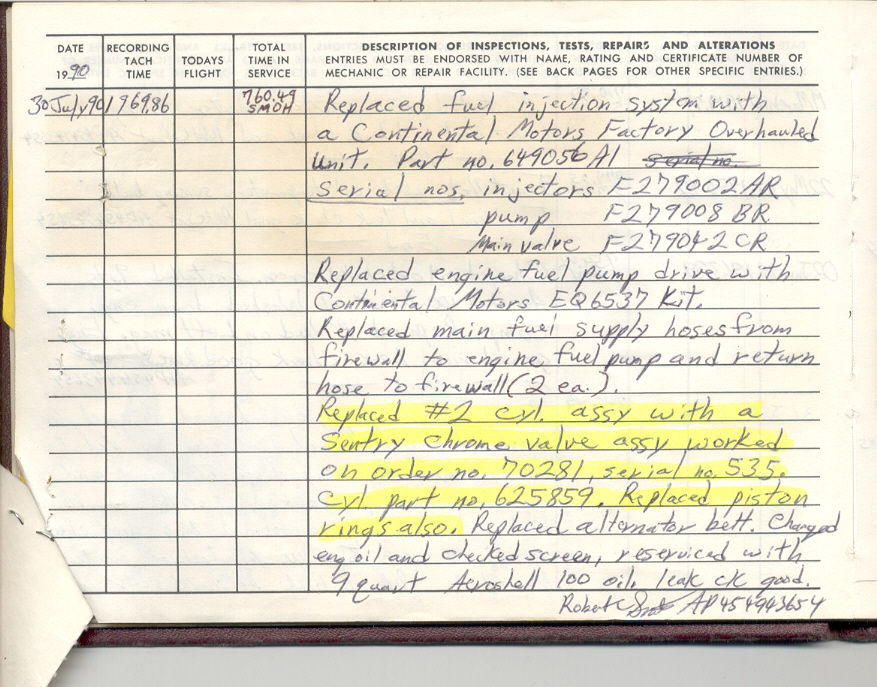 DATE
1990
RECORDING
TACH
TIME
TODAYS
FLIGHT
TOTAL
TIME IN
SERVICE
DESCRIPTION OF INSPECTIONS, TESTS, REPAIRS AND ALTERATIONS
ENTRIES MUST BE ENDORSED WITH NAME, RATING AND CERTIFICATE NUMBER OF
MECHANIC OR REPAIR FACILITY. (SEE BACK PAGES FOR OTHER SPECIFIC ENTRIES.)
30 July 90 1769.86 760.49 Replaced fuel injection system with
SMOH
a Continental Motors Factory Overhauled
unit. Part no. 649056A1 serial no.
Serial nos. injectors F279002AR
pump F279008BR
Main valve F279042CR
Replaced engine fuel pump drive with
Continental Motors EQ6537 Kit.
Replaced main fuel supply hoses from
firewall to engine fuel pump and return
hose to firewall (2 ea.).
Replaced #2 cyl. assy with a
Sentry chrome valve assy worked
on order no. 70281, serial no. 535.
Cyl part no. 625859. Replaced piston
rings also. Replaced alternator belt. Changed
eng oil and checked screen, reserviced with
9 quart Aeroshell 100 oil. leak ck good.
Robert C AP454943654